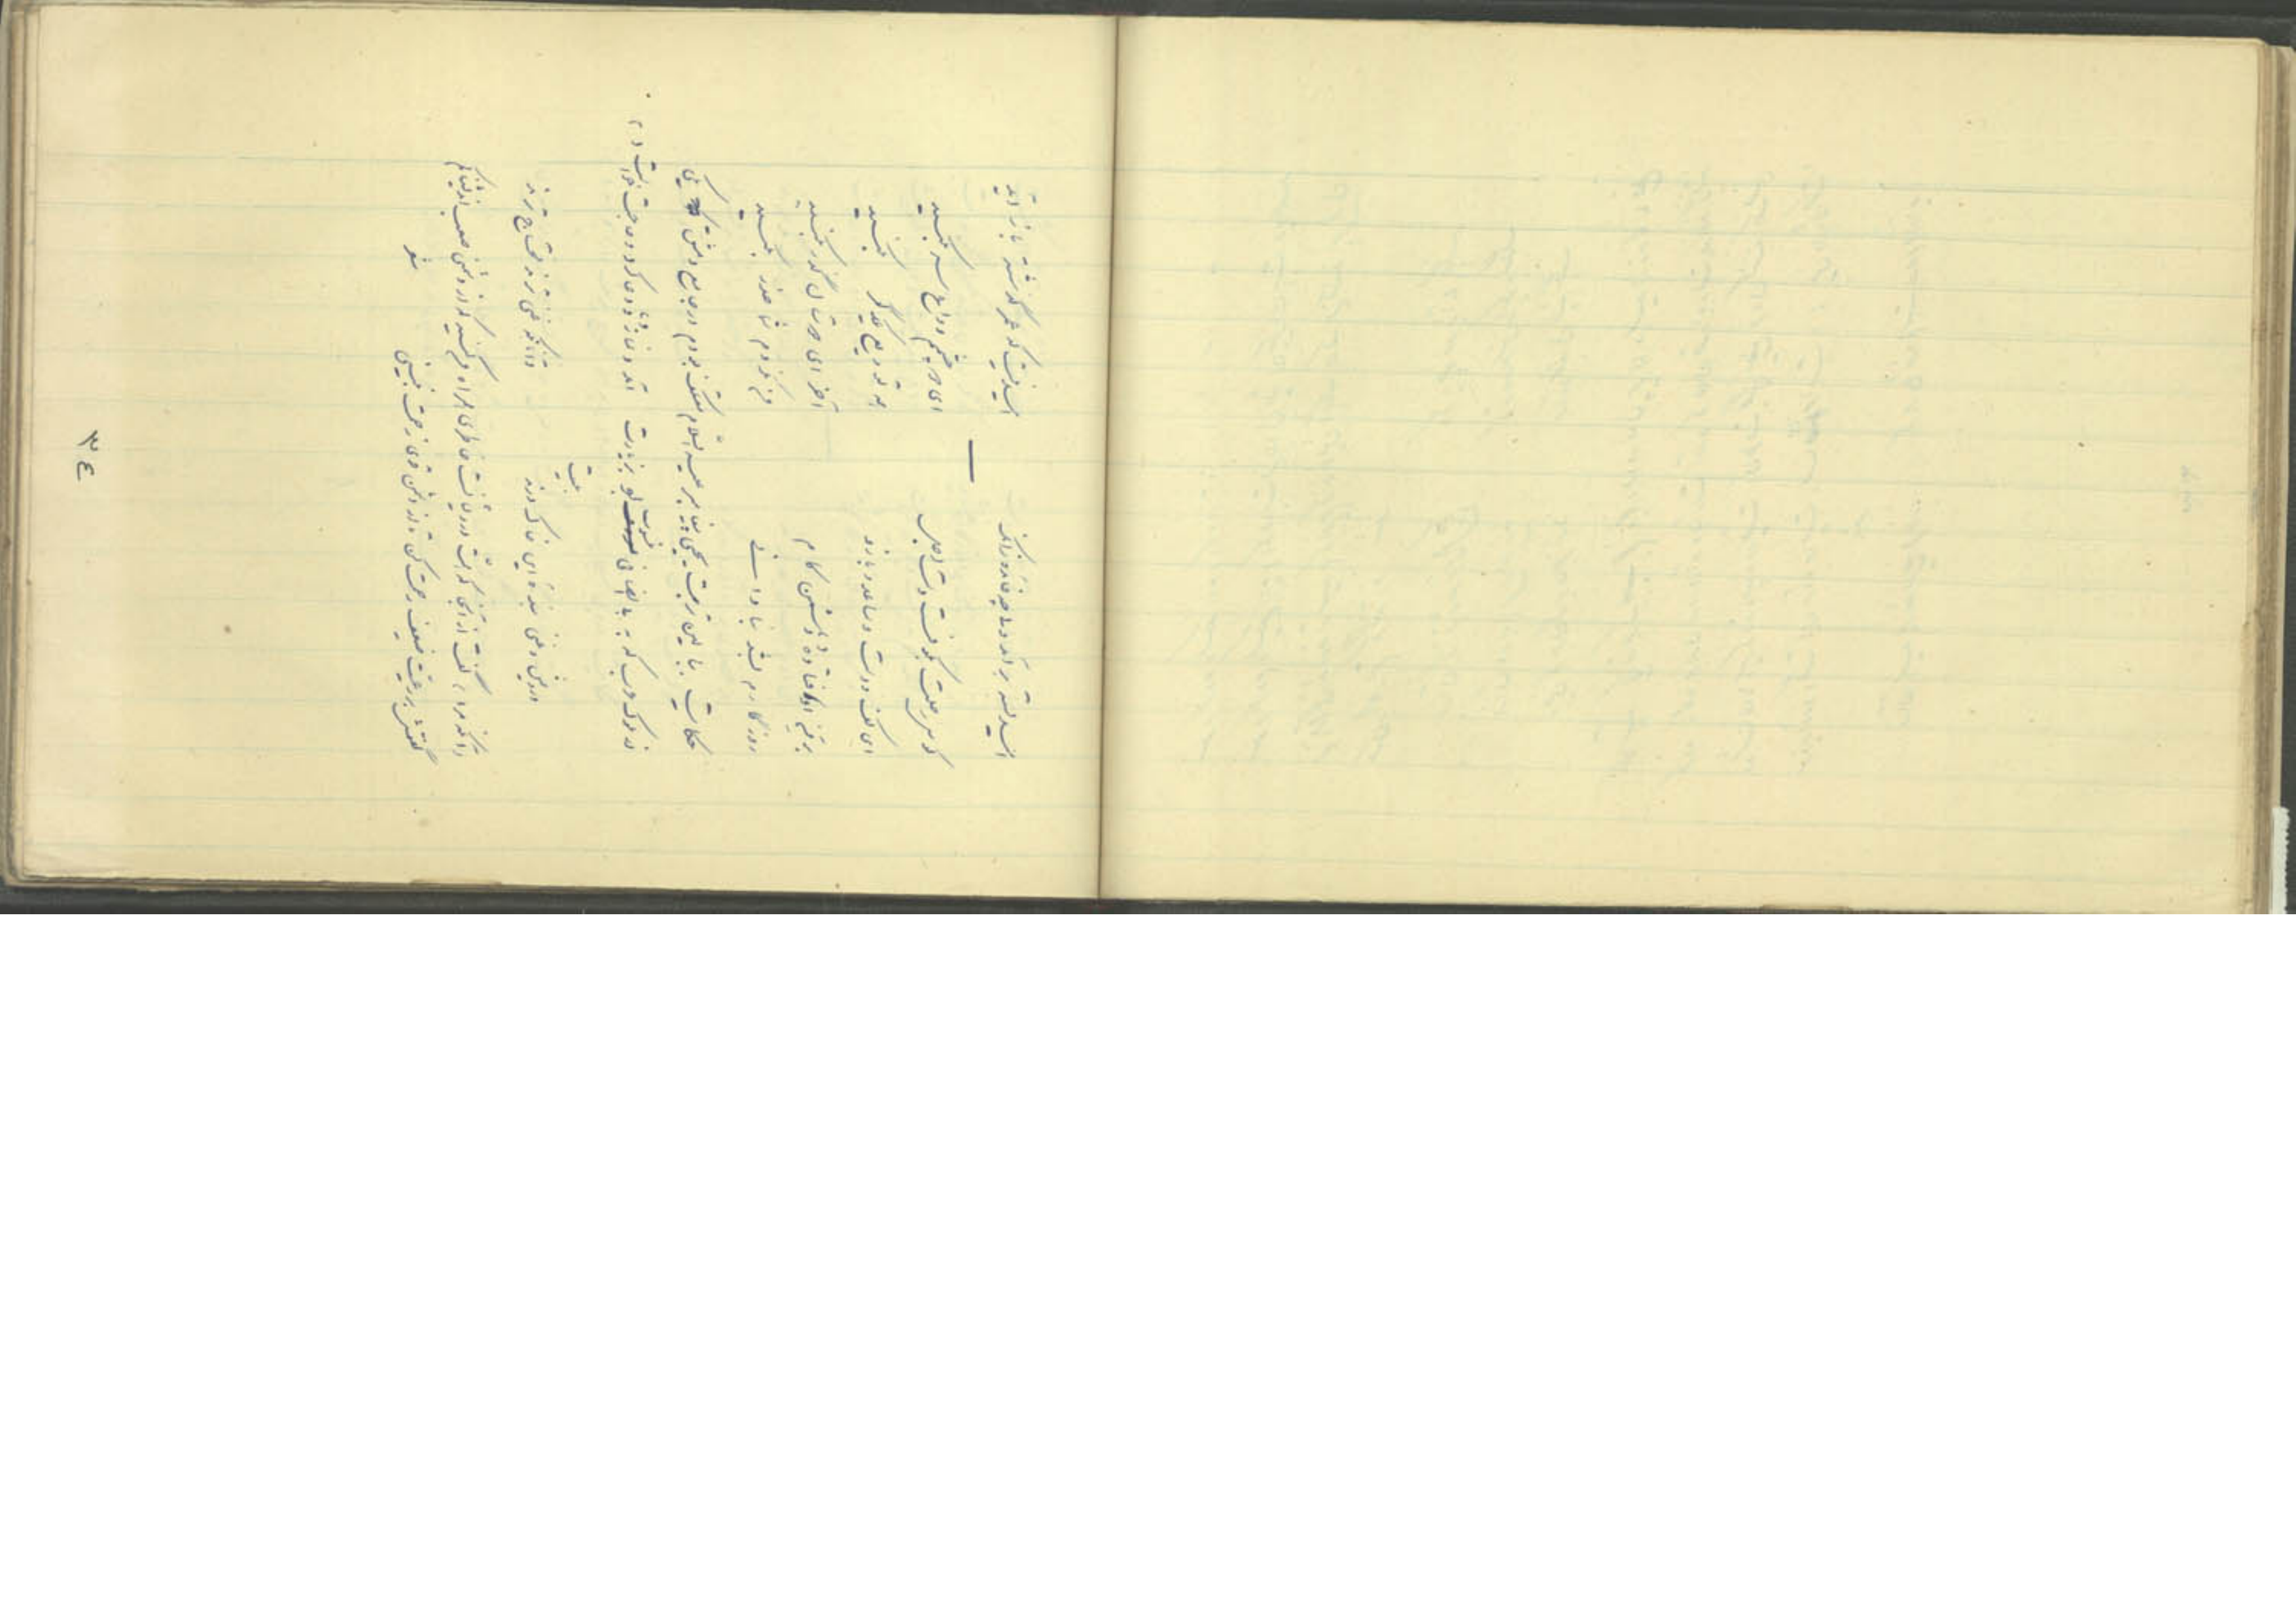 امید بسته بر آمد ولی چه فایده زانک	امید نیست که عمر گذشته باز آید
کوس رحلت بکوفت دست اجل	ای دو چشم وداع سر بکنید
ای کف دست و ساعد و بازو	همه تودیع یکدگر بکنید
بر من اوفتاده دشمن کام	آخر ای دوستان گذر بکنید
روزگارم بشد بنادانی	من نکردم شما حذر بکنید
حکایت ببالین تربت یحیی پیغامبر علیه السلام معتکف بودم در جامع دمشق که یکی
از ملوک عرب که به بی انصافی منسوب بود بزیارت آمد و نماز و دعا کرد و حاجت خواست و
بیت
درویش و غنی بنده این خاک درند	و آنانکه غنی ترند محتاج ترند
آنگه مرا گفت از آنجا که همت درویشانست خاطری همراه من کنید که از دشمنی صعب اندیشناکم
گفتمش بر رعیت ضعیف رحمت کن تا از دشمن قوی زحمت نبینی	شعر
۳٤